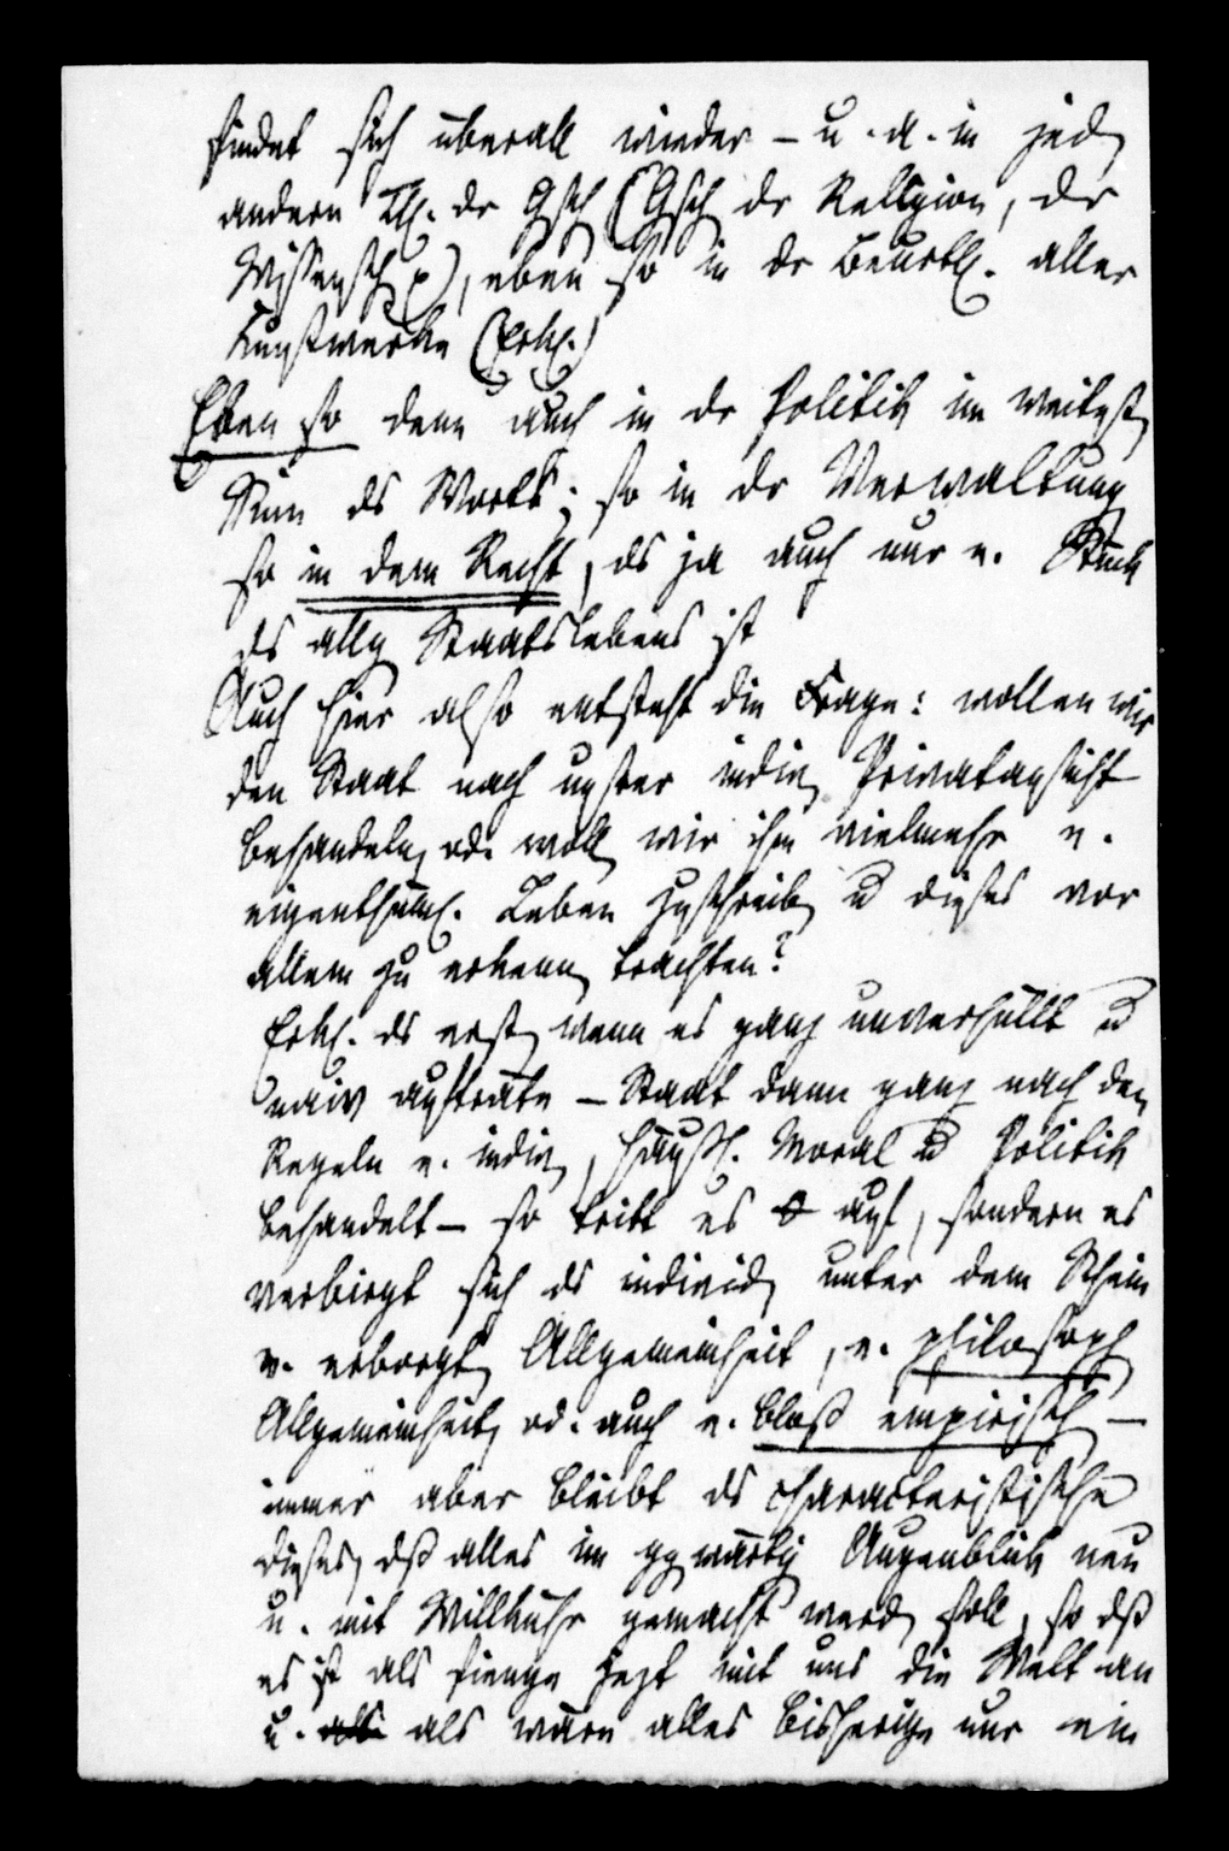 findet sich überall wieder – u. a. in jed
andern Th. dr Gsch (Gsch dr Religion, dr
Wissensch p), eben so in dr Beurtl. aller
Kunstwerke (Erkl.)
Eben so denn auch in dr Politik im weitest
Sinn ds Worts; so in dr Verwaltung
so in dem Recht, ds ja auch nur e. Stück
ds allg Staatslebens ist
Auch hier also entsteht die Frage: wollen wir
den Staat nach unsrer indiv Privatansicht
behandeln, od. woll wir ihm vielmehr e.
eigenthüml. Leben zuschreib u dieses vor
allem zu erkenn trachten?
Erkl. ds erst, wenn es ganz unverhüllt u
naiv aufträte – Staat dann ganz nach den
Regeln e. indiv, häusl. Moral u Politik
behandelt – so tritt es 0 auf, sondern es
verbirgt sich ds individ unter dem Schein
e. erborgt Allgemeinheit, e. philosoph
Allgemeinheit, od. auch e. bloß empirisch –
immer aber bleibt ds characteristische
dieses, dß alles im ggwärtig Augenblick neu
u. mit Willkühr gemacht werd soll, so dß
es ist als fienge jezt mit uns die Welt an
u. als als wäre alles bisherige nur ein